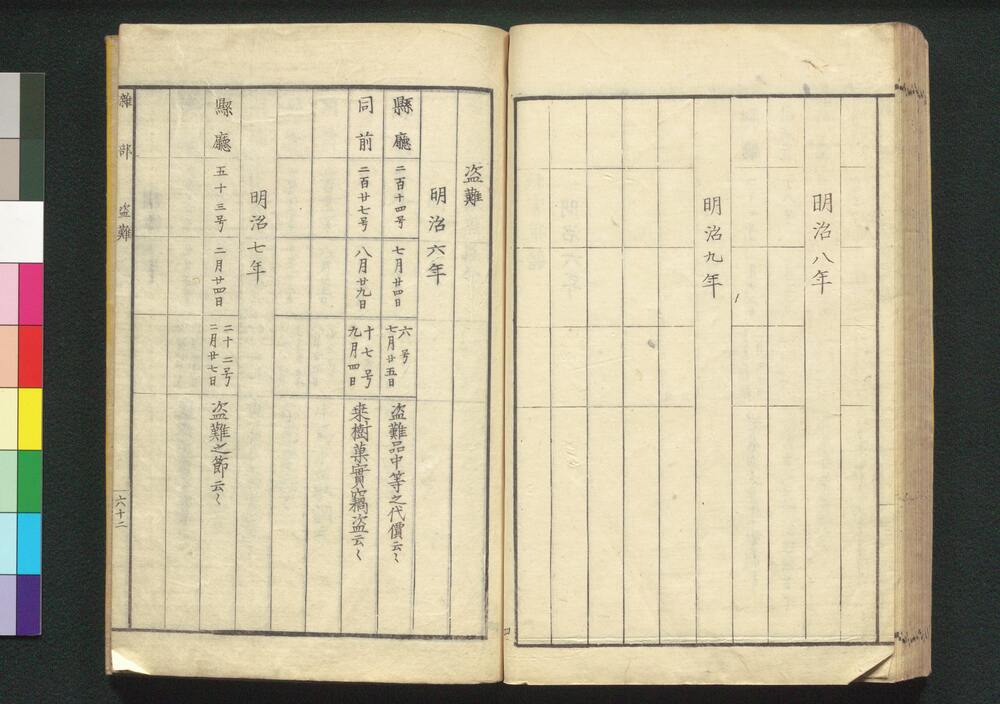 明治八年
明治九年
盗難
明治六年
縣廳 二百十四号 七月廿四日 六号 七月廿五日 盗難品中等之代價云〻
同前 二百廿七号 八月廿九日 十七号 九月四日 来樹菓實竊盗云〻
明治七年
縣廳 五十三号 二月廿四日 二十二号 二月廿七日 盗難之節云〻
雜部 盗難 六十二